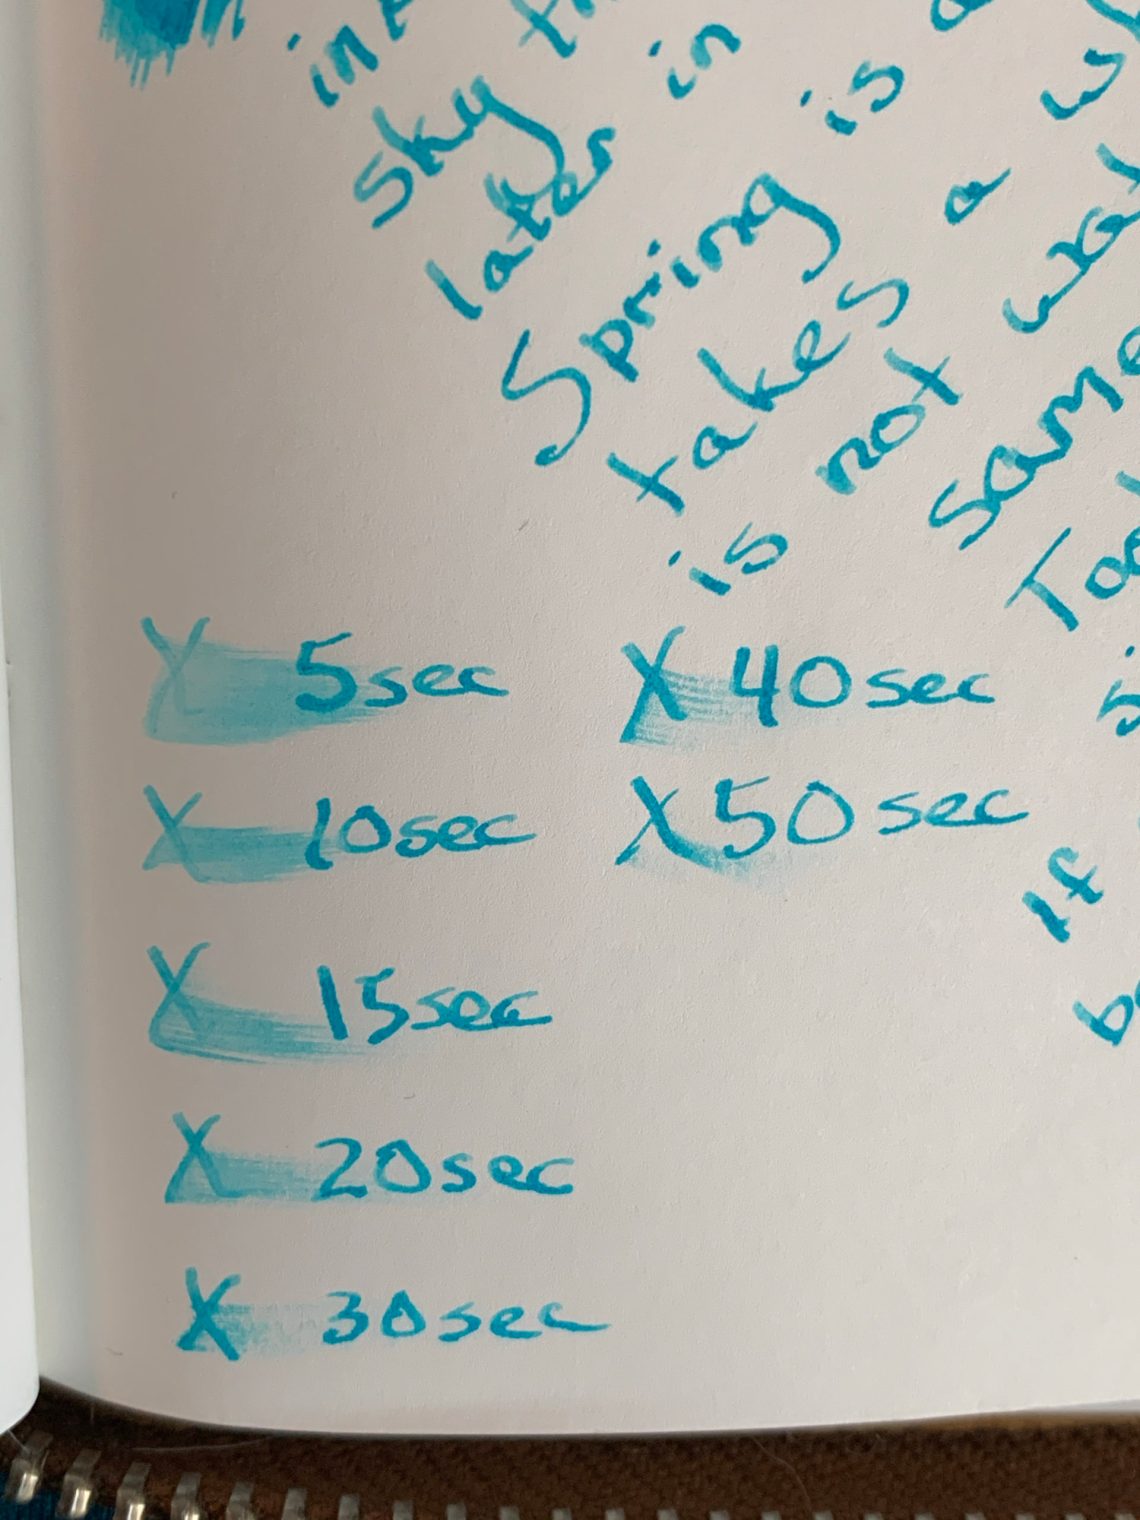 in
sky
later in
Spring is a
takes a
is not
same
If
X 5sec
X 10sec
X 15sec
X 20sec
X 30sec
X 40sec
X 50sec